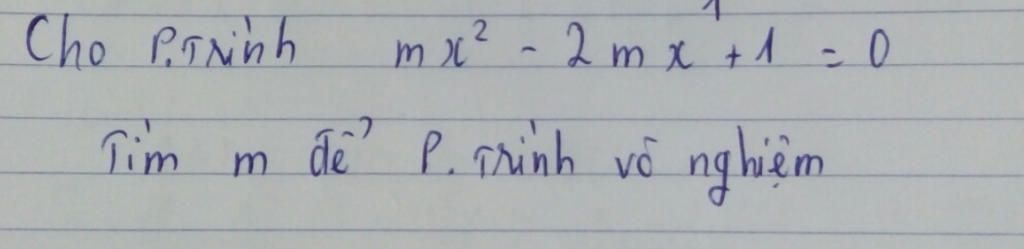 Cho P.Trình mx² - 2mx + 1 = 0
Tìm m để P.Trình vô nghiệm